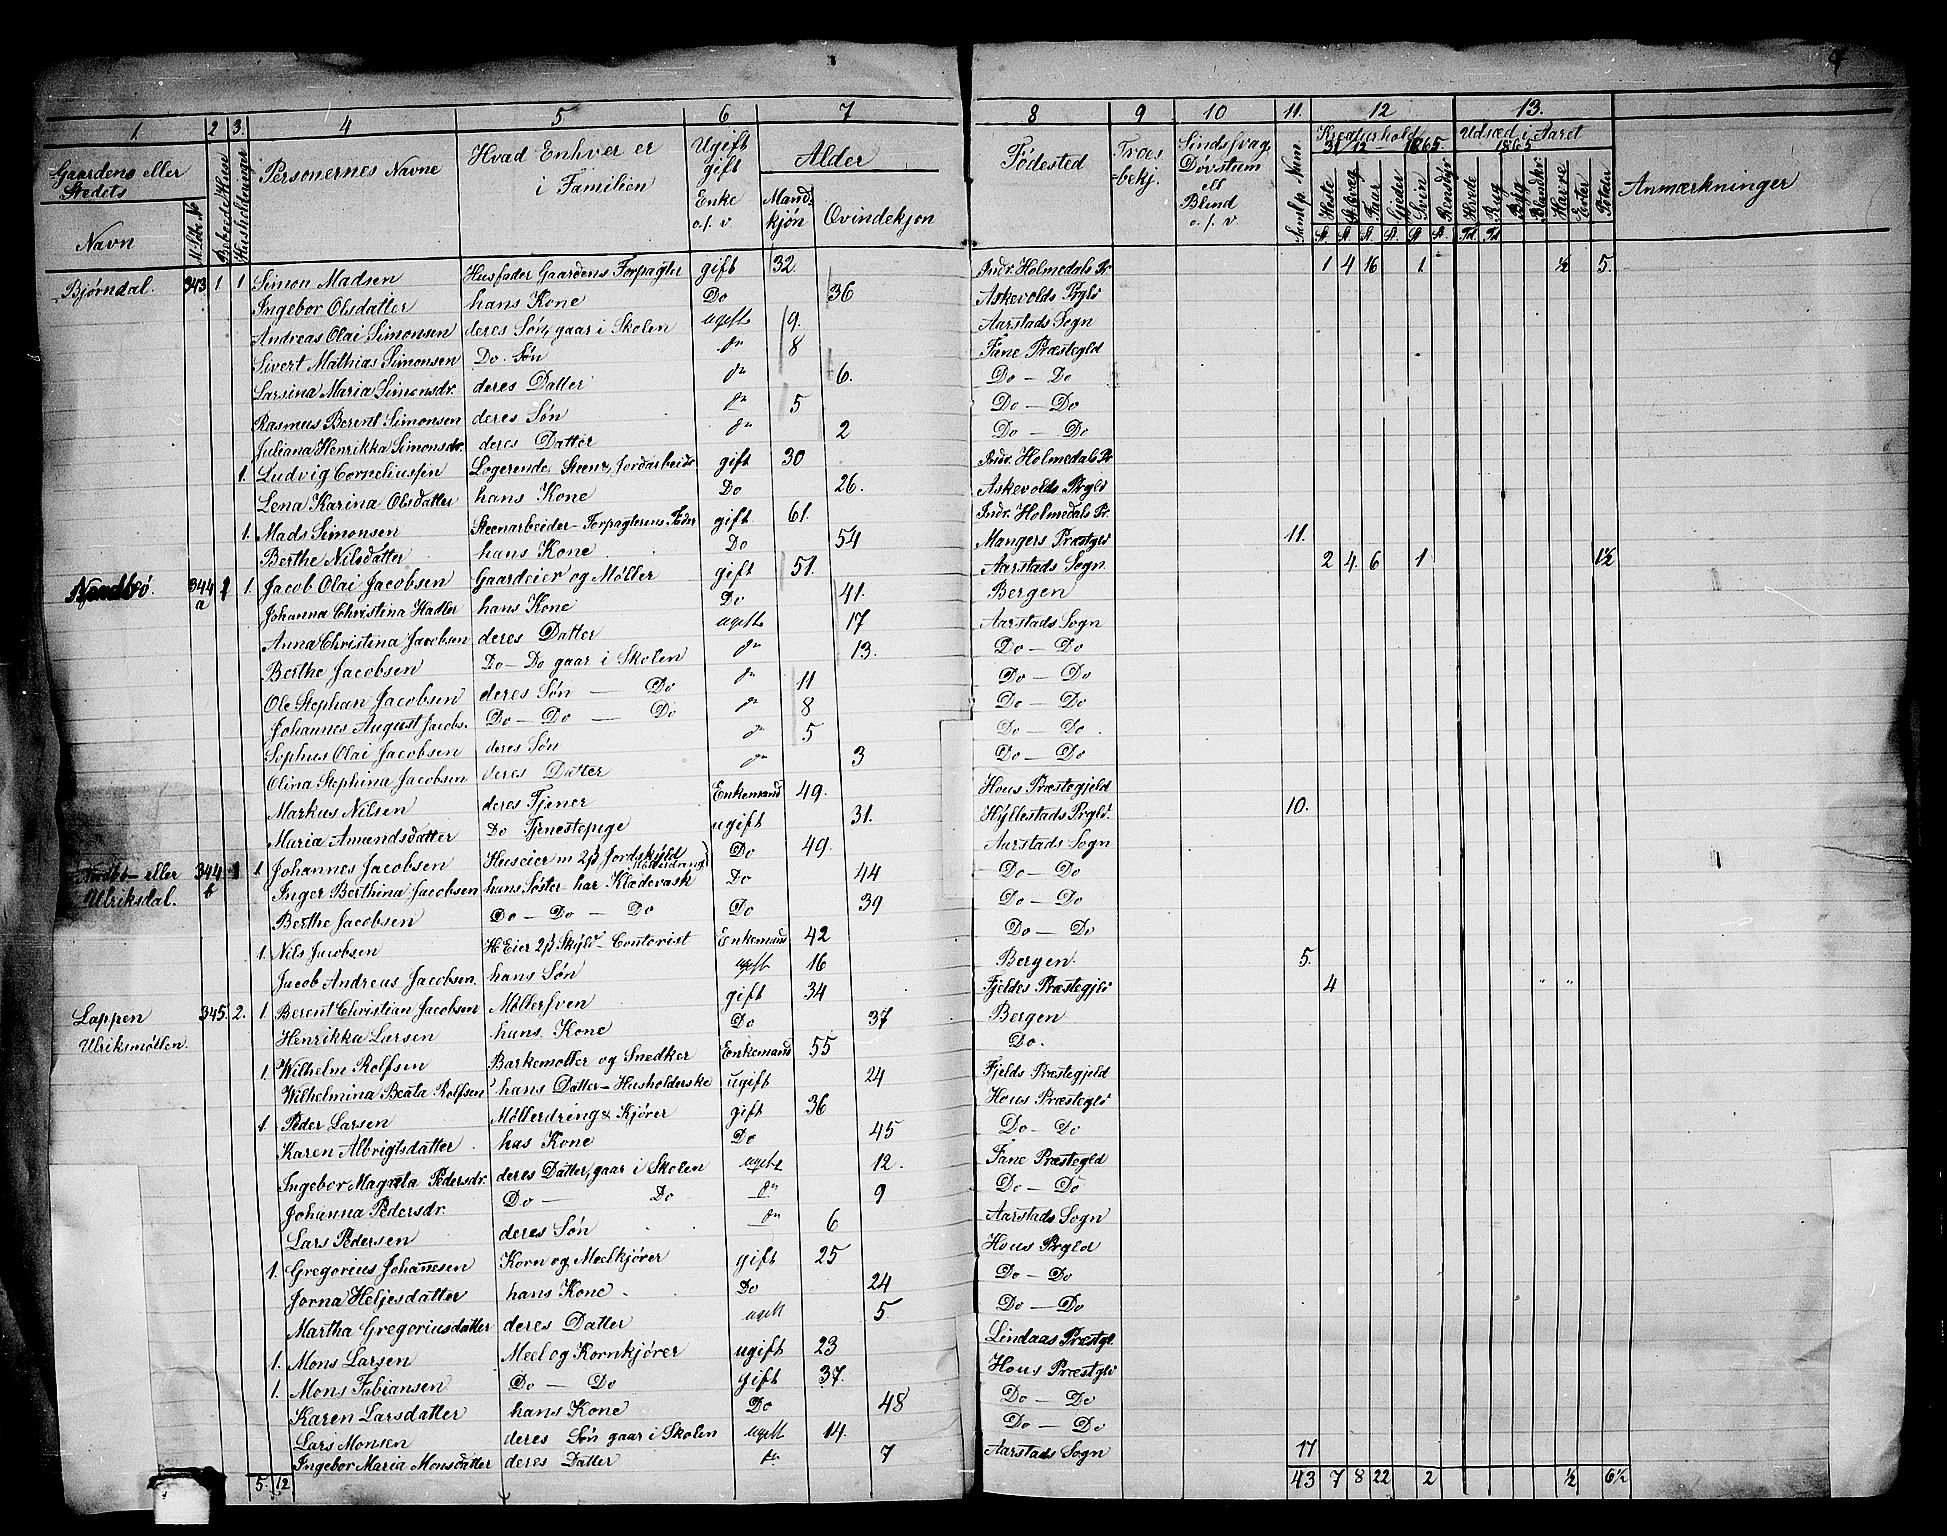 4
1. 2 3. 4 5 6 7 8 9 10 11. 12 13.
Gaardens eller Stedets Navn | M. No | Beboede Huse | Husholdninger | Personernes Navne | Hvad Enhver er i Familien | Ugift gift Enke o.s.v. | Alder Mandkjön Qvindekjön | Födested | Troesbekj. | Sindssvag, Døvstum ell Blind o.s.v. | Saml. p. Num. | Kreaturhold 31/12 1865. Heste Stk. Qvæg Faar Gjeder Sviin Rensdyr | Udsæd i Aaret 1865 Hvede Rug Byg Blandkr Havre Erter Poteter | Anmærkninger
Bjørndal. 343 1 1 Simon Madsen Husfader Gaardens Forpagter gift 32. Indr. Holmedals Pr 1 4 16 1 ½ 5.
Ingebor Olsdatter hans Kone Do 36 Askevolds Prgld
Andreas Olai Simonsen deres Søn, gaar i Skolen ugift 9. Aarstads Sogn
Sivert Mathias Simonsen Do. Søn do 8 Fane Præstegld
Larsina Maria Simonsdr. deres Datter do 6. Do — Do
Rasmus Berent Simonsen deres Søn do 5 Do — Do
Juliana Henrikka Simonsdr. deres Datter do 2 Do — Do
1. Ludvig Corneliussen Logerende, Steen & Jordarbeidr gift 30 Indr. Holmedals Pr
Lena Karina Olsdatter hans Kone Do 26. Askevolds Prgld
1. Mads Simonsen Steenarbeider - Forpagterens Fader gift 61. Indr. Holmedals Pr.
Berthe Nilsdatter hans Kone Do 54 Mangers Præstgld 11.
Nordbø. 344 a 1 1 Jacob Olai Jacobsen Gaardeier og Møller gift 51. Aarstads Sogn 2 4 6 1 1½
Johanna Christina Hadler hans Kone Do 41. Bergen
Anna Christina Jacobsen deres Datter ugift 17 Aarstads Sogn
Berthe Jacobsen Do — Do gaar i Skolen do 13. Do — Do
Ole Stephan Jacobsen deres Søn — Do do 11 Do — Do
Johannes August Jacobs. Do — Do — Do do 8 Do — Do
Sophus Olai Jacobsen deres Søn do 5 Do — Do.
Olina Stephina Jacobsen deres Datter do 3 Do — Do
Markus Nilsen deres Tjener Enkemand 49. Hous Præstegjeld
Maria Amundsdatter Do Tjenestepige ugift 31. Hyllestads Prgld. 10.
Nordbø eller Ulriksdal. 344 b 1 1 Johannes Jacobsen Huseier m 2ß Jordskyld Do 49. Aarstads Sogn
Inger Berthina Jacobsen hans Søster - har Klædevask Do 44 Do — Do
Berthe Jacobsen Do — Do — Do Do 39 Do — Do
1. Nils Jacobsen H. Eier 2ß Skyld - Contorist Enkemand 42 Do — Do
Jacob Andreas Jacobsen. hans Søn ugift 16 Bergen. 5.
Lappen Ulriksmøllen. 345. 2. 1 Berent Christian Jacobsen Møllersven gift 34 Fjeldes Præstegjld 4 " "
Henrikka Larsen hans Kone Do 37 Bergen
1. Wilhelm Rolfsen Barkemøller og Snedker Enkemand 55 Do.
Wilhelmina Beata Rolfsen hans Datter - Husholderske ugift 24 Fjelds Præstegjeld
1. Peder Larsen Møllerdreng & Kjører gift 36 Hous Præstegld
Karen Albrigtsdatter has Kone Do 45 Do — Do
Ingebor Magrela Pedersdr. deres Datter, gaar i Skolen ugift 12. Fane Præstegld
Johanna Pedersdr. Do — Do do 9 Do — Do
Lars Pedersen deres Søn do 6 Aarstads Sogn
1. Gregorius Johannesen Korn og Meelkjører gift 25 Hous Prgld
Jorna Heljesdatter hans Kone Do 24 Do — Do
Martha Gregoriusdatter deres Datter ugift 5. Do — Do
1. Mons Larsen Meel og Kornkjører ugift 23 Lindaas Præstgl.
1. Mons Fabiansen Do — Do gift 37. Hous Præstgld
Karen Larsdatter hans Kone Do 48 Do — Do
Lars Monsen deres Søn gaar i Skolen ugift 14. Do — Do
Ingebor Maria Monsdatter deres Datter do 7 Aarstads Sogn 17
5. 12 43 7 8 22 2 ½ 6½